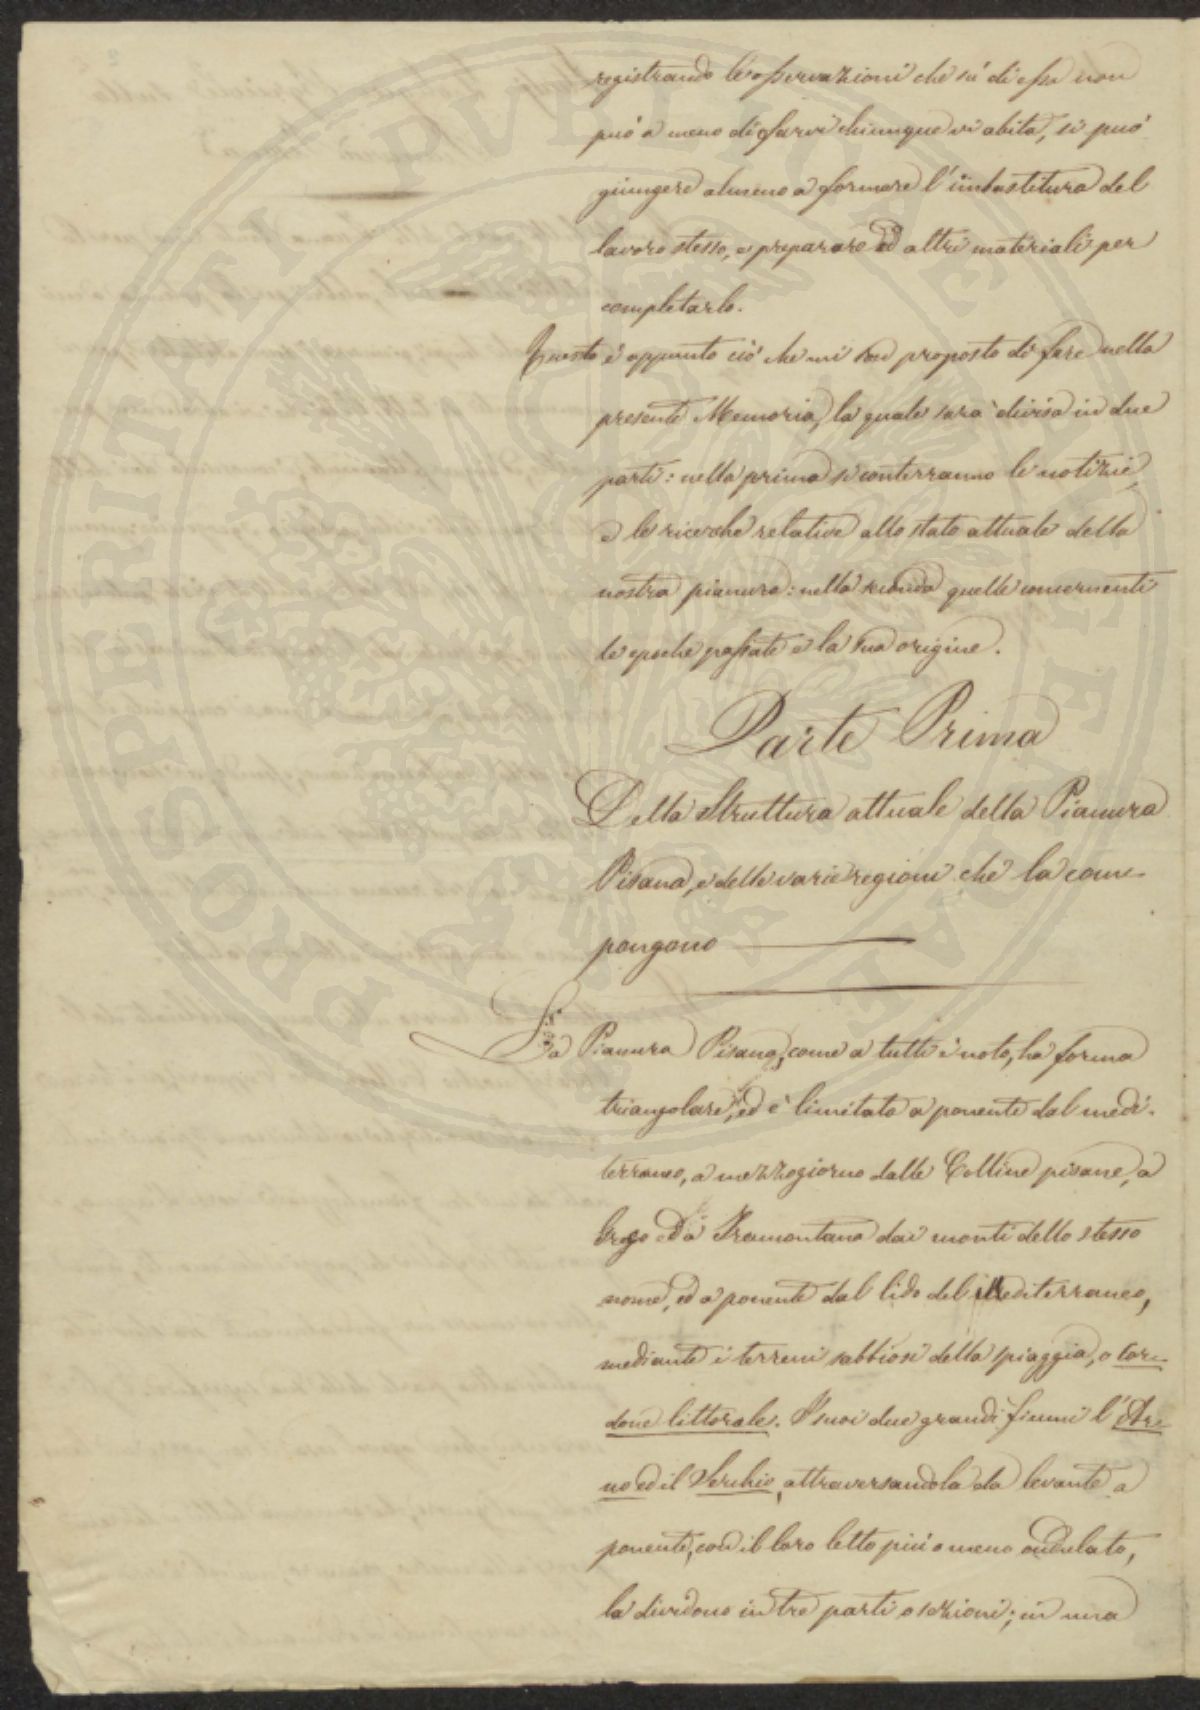 registrando le osservazioni che su di essa non
può a meno di farvi chiunque vi abita, si può
giungere almeno a formare l'imbastitura del
lavoro stesso, e preparare ed altri materiali per
completarlo.
Questo è appunto ciò che mi son proposto di fare nella
presente Memoria, la quale sarà divisa in due
parti: nella prima si conterranno le notizie,
e le ricerche relative allo stato attuale della
nostra pianura: nella seconda quelle concernenti
le epoche passate e la sua origine.
Parte Prima
Della Struttura attuale della Pianura
Pisana, e delle varie regioni che la com-
pongono
La Pianura Pisana, come a tutti è noto, ha forma
triangolare, ed è limitata a ponente dal medi-
terraneo, a mezzogiorno dalle Colline pisane, a
Grego ed a Tramontana dai monti dello stesso
nome, ed a ponente dal lido del Mediterraneo,
mediante i terreni sabbiosi della spiaggia, o cor-
done littorale. I suoi due grandi fiumi l'Ar-
no ed il Serchio, attraversandola da levante a
ponente, con il loro letto più o meno ondulato,
la dividono in tre parti o sezioni; in una
PROSPERITATI PVBLICAE AVGENDAE